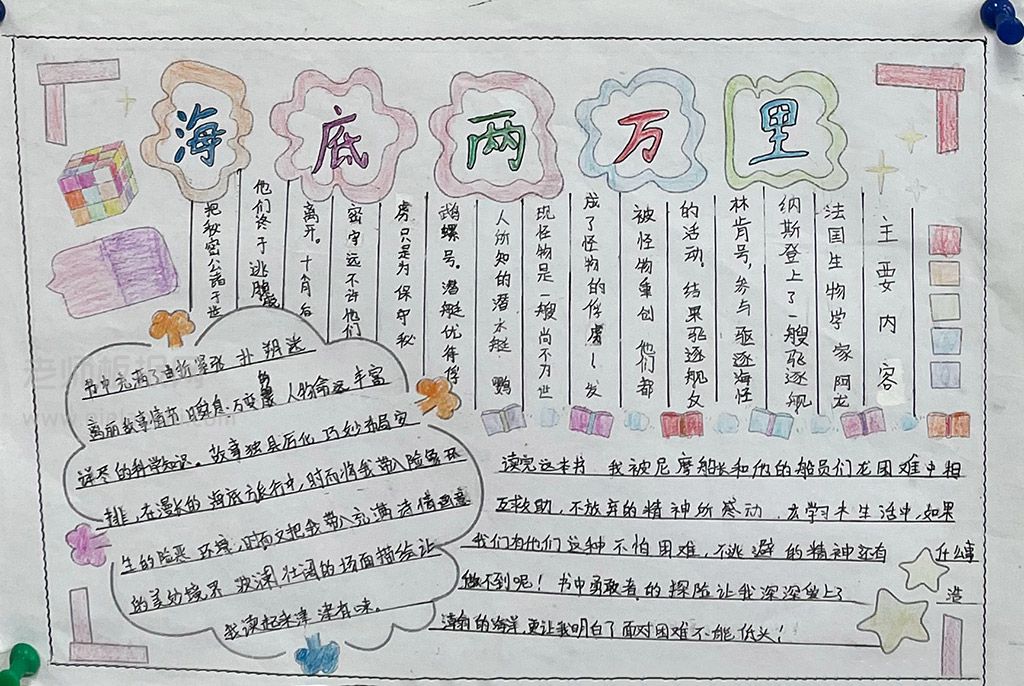 海底两万里
主要内容
法国生物学家阿龙
纳斯登上了一艘驱逐舰
林肯号,参与驱逐海怪
的活动。结果驱逐舰反
被怪物重创 他们都
成了怪物的俘虏!发
现怪物是一艘尚不为世
人所知的潜水艇 鹦
鹉螺号。潜艇优待俘
虏只是为保守秘
密守远不许他们
离开。十月后
他们终于逃脱
把秘密公诸于世
书中充满了曲折紧张 扑朔迷
离丽故事情节 瞬息万变的 人物命运 丰富
详尽的科学知识。故事独具后化 巧妙布局安
排,在漫长的海底旅行中,时而将我带入险象环
生的险恶环境,时而又把我带入充满诗情画意
的美妙境界 波澜壮阔的场面描绘让
我读起来津津有味。
读完这本书 我被尼摩船长和他的船员们在困难中相
互救助,不放弃的精神所感动,在学习生活中,如果
我们有他们这种不怕困难,不逃避的精神还有 什么事
做不到呢!书中勇敢者的探险让我深深爱上了 浩
瀚的海洋,更让我明白了面对困难不能低头!